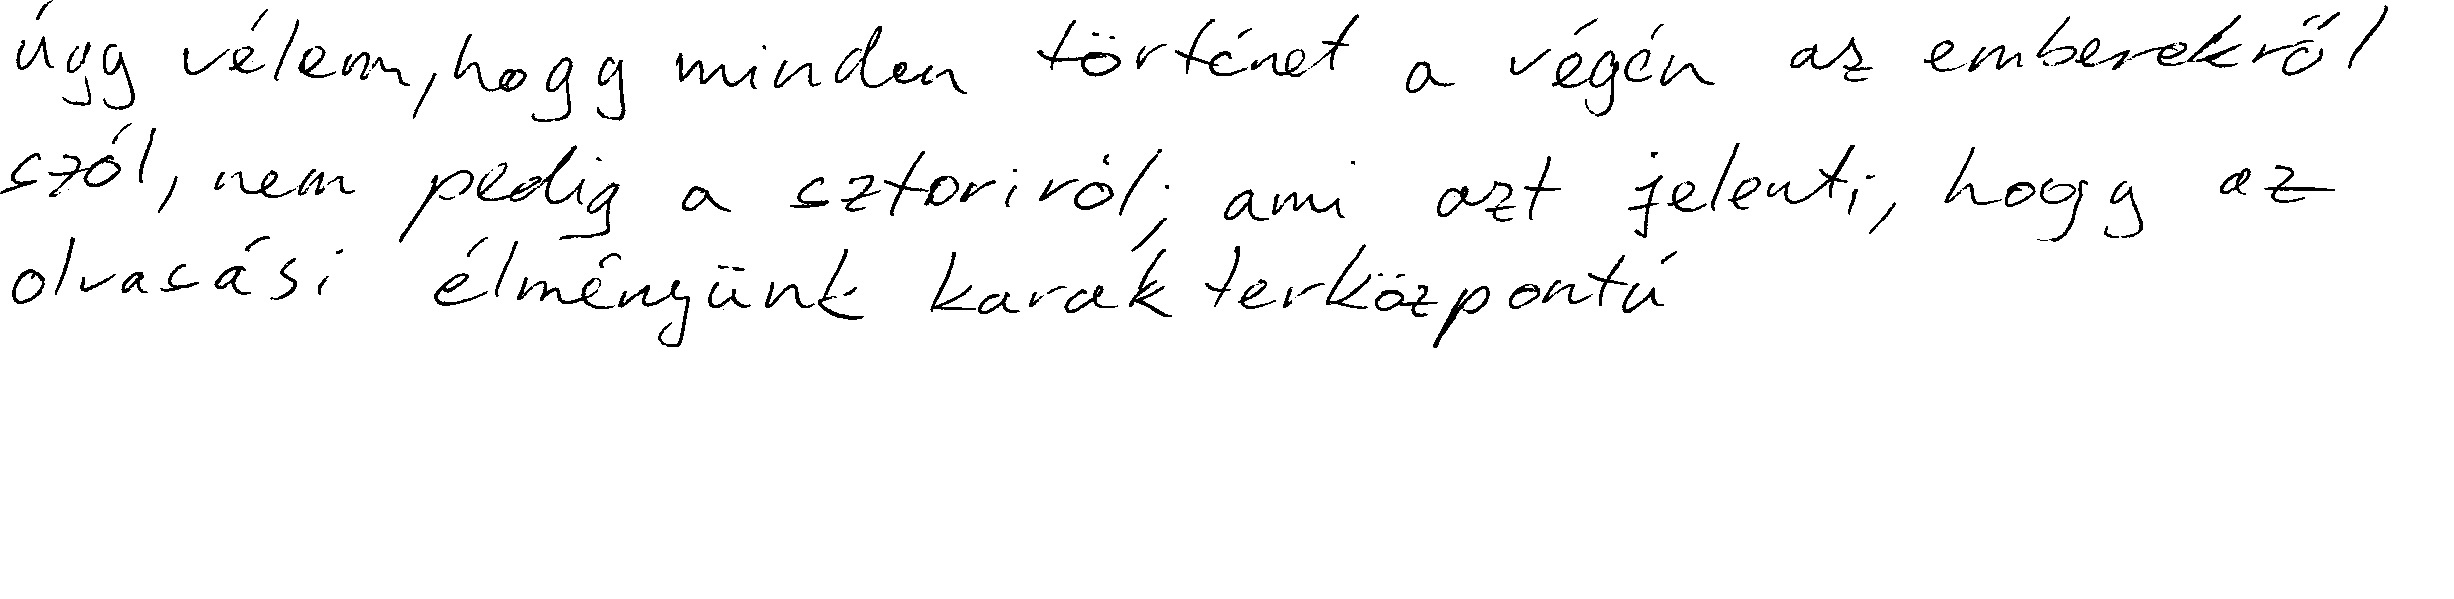 úgy vélem, hogy minden történet a végén az emberekről
szól, nem pedig a sztoriról; ami azt jelenti, hogy az
olvasási élményünk karakterközpontú